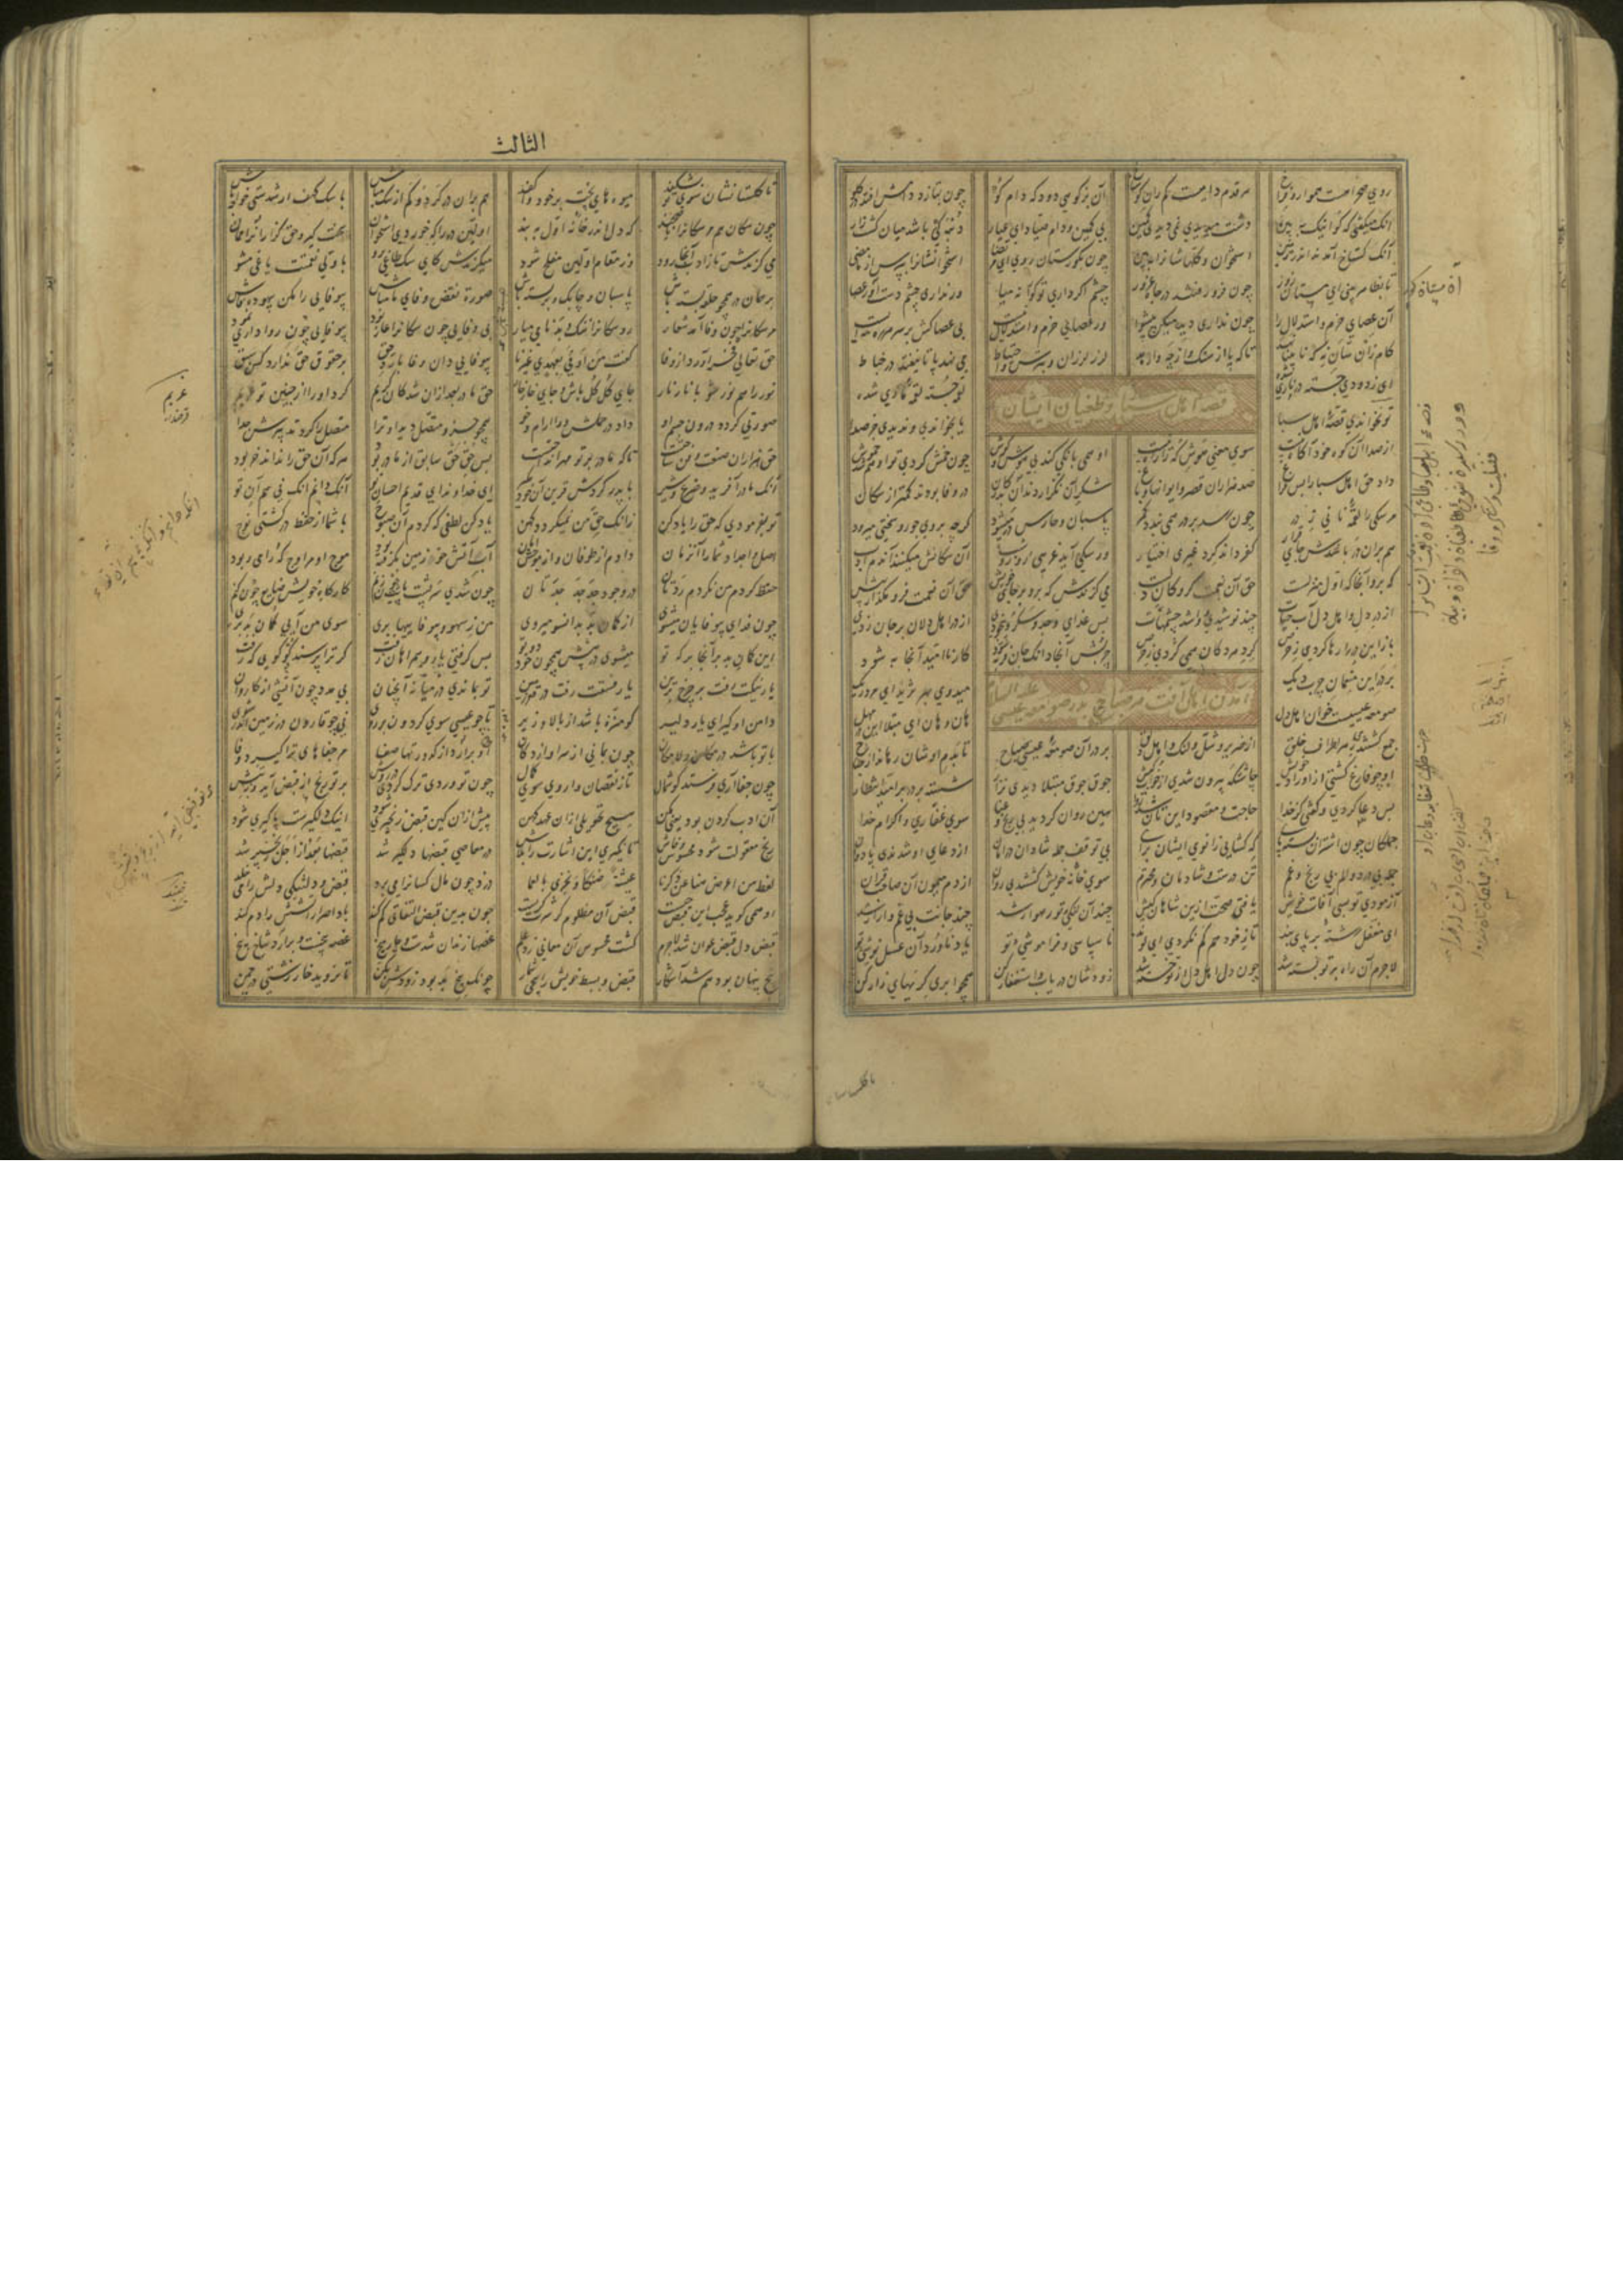 روی صحرا هست هموار و فراخ هر قدم دامیست کم ران گوستاخ آن بز کوهی دود که دام کو چون بتازد دامش افتد در گلو
آنک میگفتی که کو اینک ببین دشت میدیدی نمی دیدی کمین بی کمین و دام صیاد ای عیار دنبه کی باشد میان کشت زار
آنک گستاخ آمدند اندر زمین استخوان و کلهاشانرا ببین چون بگورستان روی ای مرتضا استخوانشانرا بپرس از ما مضی
تا بظاهر بینی آن مستان کور چون فرو رفتند در چاه غرور چشم اگر داری تو کورانه میا ور نداری چشم دست آور عصا
آن عصای حزم و استدلال را چون نداری دید میکن پیشوا ور عصای حزم و استدلال نیست بی عصاکش بر سر هر ره مایست
گام زان سان نه که نابینا نهد تا که پا از سنگ و از چه وا رهد لرز لرزان و بترس و احتیاط می نهد پا تا نیفتد در خباط
ای ز دودی جسته در ناری شده لقمه جسته لقمه ماری شده
قصه اهل سبا و طغیان ایشان
تو نخواندی قصه اهل سبا یا بخواندی و ندیدی جز صدا
از صدا آن کوه خود آگاه نیست سوی معنی هوش که را راه نیست او همی بانگی کند بی هوش و گوش چون خمش کردی تو او هم شد خموش
داد حق اهل سبا را بس فراغ صد هزاران قصر و ایوانها و باغ شکر آن نگزاردند آن بد رگان در وفا بودند کمتر از سگان
مر سگی را لقمه نانی ز در چون رسد بر در همی بندد کمر پاسبان و حارس در میشود گرچه بر وی جور و سختی میرود
هم بران در باشدش جای قرار کفر داند کرد غیری اختیار ور سگی آید غریبی روز و شب آن سگانش میکنند آندم ادب
که برو آنجا که اول منزلست حق آن نعمت گروگان دلست می گزندش که برو بر جای خویش حق آن نعمت فرو مگذار بیش
از در دل و اهل دل آب حیات چند نوشیدی و وا شد چشمهات بس غذای وجد و سکر و بیخودی از در اهل دلان بر جان زدی
باز این در را رها کردی ز حرص گرد هر دکان همی گردی ز حرص چربش آنجا دانک جان فربه شود کار نا امید آنجا به شود
بر در این منعمان چرب دیگ میدوی بهر ثرید ای مرد ریگ
آمدن اهل آفت هر صباح بدر صومعه عیسی علیه السلام
صومعه عیسیست خوان اهل دل هان و هان ای مبتلا این در مهل
جمع گشتندی ز هر اطراف خلق از ضریر و شل و لنگ و اهل دلق بر در آن صومعه عیسی صباح تا بدم اوشان رهاند از جناح
او چو فارغ گشتی از اوراد خویش چاشتگه بیرون شدی آن خوب کیش جوق جوق مبتلا دیدی نزار شسته بر در بر امید و انتظار
پس دعا کردی و گفتی از خدا حاجت و مقصود این تان شد روا هین روان گردید بی رنج و عنا سوی غفاری و اکرام خدا
جملگان چون اشتران بسته پای که گشایی زانوی ایشان برای بی توقف جمله شادان در امان از دعای او شدندی پا دوان
جمله بی درد و الم بی رنج و غم تن درست و شادمان و محترم سوی خانه خویش گشتندی روان از دم میمون آن صاحب قران
آزمودی تو بسی آفات خویش یافتی صحت ازین شاهان کیش چند آن لنگی تو رهوار شد چند جانت بی غم و آزار شد
ای مغفل رشته بر پای بند تا ز خود هم گم نگردی ای لوند نا سپاسی و فراموشی تو یاد ناورد آن عسل نوشی تو
لاجرم آن راه بر تو بسته شد چون دل اهل دل از تو خسته شد زودشان دریاب و استغفار کن همچو ابری گریهای زار کن
تا گلستان
الثالث
تا گلستانشان سوی تو بشکفد میوهای پخته بر خود وا کفد هم بران در گرد و کم از سگ مباش با سگ کهف ار شدستی خواجه تاش
چون سگان هم مر سگانرا ناصحند که دل اندر خانه اول ببند اولین در را که خوردی استخوان سخت گیر و حق گزار آنرا ممان
می گزندش تا ز ادب آنجا رود وز مقام اولین مفلح شود میگزندش کای سگ طاغی برو با ولی نعمتت یاغی مشو
بر همان در همچو حلقه بسته باش پاسبان و چابک و برجسته باش صورت نقض وفای ما مباش بیوفایی را مکن بیهوده فاش
مر سگانرا چون وفا آمد شعار رو سگانرا ننگ و بدنامی میار بی وفایی چون سگانرا عار بود بیوفایی چون روا داری نمود
حق تعالی فخر آورد از وفا گفت من اوفی بعهد غیرنا بیوفایی دان وفا با رد حق بر حقوق حق ندارد کس سبق
نور را هم نور شو با نار نار جای گل گل باش و جای خار خار حق مادر بعد ازان شد کان کریم کرد او را از جنین تو غریم
صورتی کرده درون جسم او داد در حملش ورا آرام و خو همچو جزو متصل دید او ترا متصل را کرد تدبیرش جدا
حق هزاران صنعت و فن ساختست تا که مادر بر تو مهر انداختست پس حق حق سابق از مادر بود هر که آن حق را نداند خر بود
آنک مادر آفرید و ضرع و شیر با پدر کردش قرین آن خود مگیر ای خداوند ای قدیم احسان تو آنک دانم وانک نی هم آن تو
تو بفرمودی که حق را یاد کن زانک حق من نمیگردد کهن یاد کن لطفی که کردم آن صبوح با شما از حفظ در کشتی نوح
اصل و اجداد شما را آن زمان دادم از طوفان و از موجش امان آب آتش خو زمین بگرفته بود موج او مر اوج که را می ربود
حفظ کردم من نکردم ردتان در وجود جد جد جدتان چون شدی سر پشت پایت چون زنم کارگاه خویش ضایع چون کنم
چون فدای بیوفایان میشوی از گمان بد بدانسو میروی من ز سهو و بیوفاییها بری سوی من آیی گمان بد بری
این گمان بد بر آنجا بر که تو میشوی در پیش همچون خود دو تو بس گرفتی یار و همراهان زفت گر ترا پرسند کو گویی که رفت
یار نیکت رفت بر چرخ برین یار فسقت رفت در قعر زمین تو بماندی در میانه آنچنان بی مدد چون آتشی از کاروان
دامن او گیر ای یار دلیر کو منزه باشد از بالا و زیر نی چو عیسی سوی گردون بر رود نی چو قارون در زمین اندر رود
با تو باشد در مکان و لامکان چون بمانی از سرا و از دکان او بر آرد از کدورتها صفا مر جفاهای ترا گیرد وفا
چون جفا آری فرستد گوشمال تا ز نقصان وا روی سوی کمال چون تو وردی ترک کردی در روش بر تو رنج از قبض آید و تپش
آن ادب کردن بود یعنی مکن هیچ تحویلی ازان عهد کهن پیش ازان کین قبض زنجیری شود اینک دلگیرست پاگیری شود
رنج معقولت شود محسوس و فاش تا نگیری این اشارت را بلاش در معاصی قبضها دلگیر شد قبضها بعد از اجل زنجیر شد
نعط من اعرض هنا عن ذکرنا عیشة ضنکا و نجزی بالعما دزد چون مال کسانرا می برد قبض و دلتنگی دلش را می خلد
او همی گوید عجب این قبض چیست قبض آن مظلوم کز شرت گریست چون بدین قبض التفاتی کم کند باد اصرار آتشش را دم کند
قبض دل قبض عوان شد لاجرم گشت محسوس آن معانی زد علم غصها زندان شدست و چارمیخ غصه بیخست و بروید شاخ بیخ
بیخ پنهان بود هم شد آشکار قبض و بسط خویش را بیخی شمار چونک بیخ بد بود زودش بکن تا نروید خار زشتی در چمن
غریم